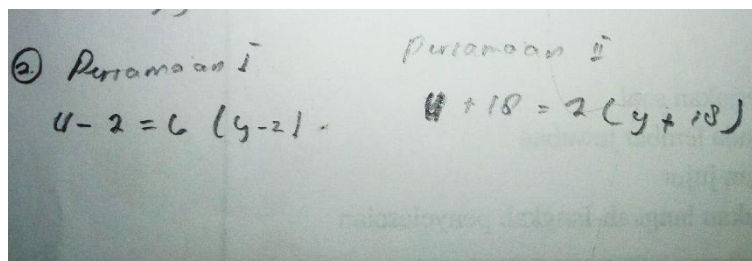 2. Persamaan I
4 - 2 = 6 (y - 2)
Persamaan II
4 + 18 = 2 (y + 18)